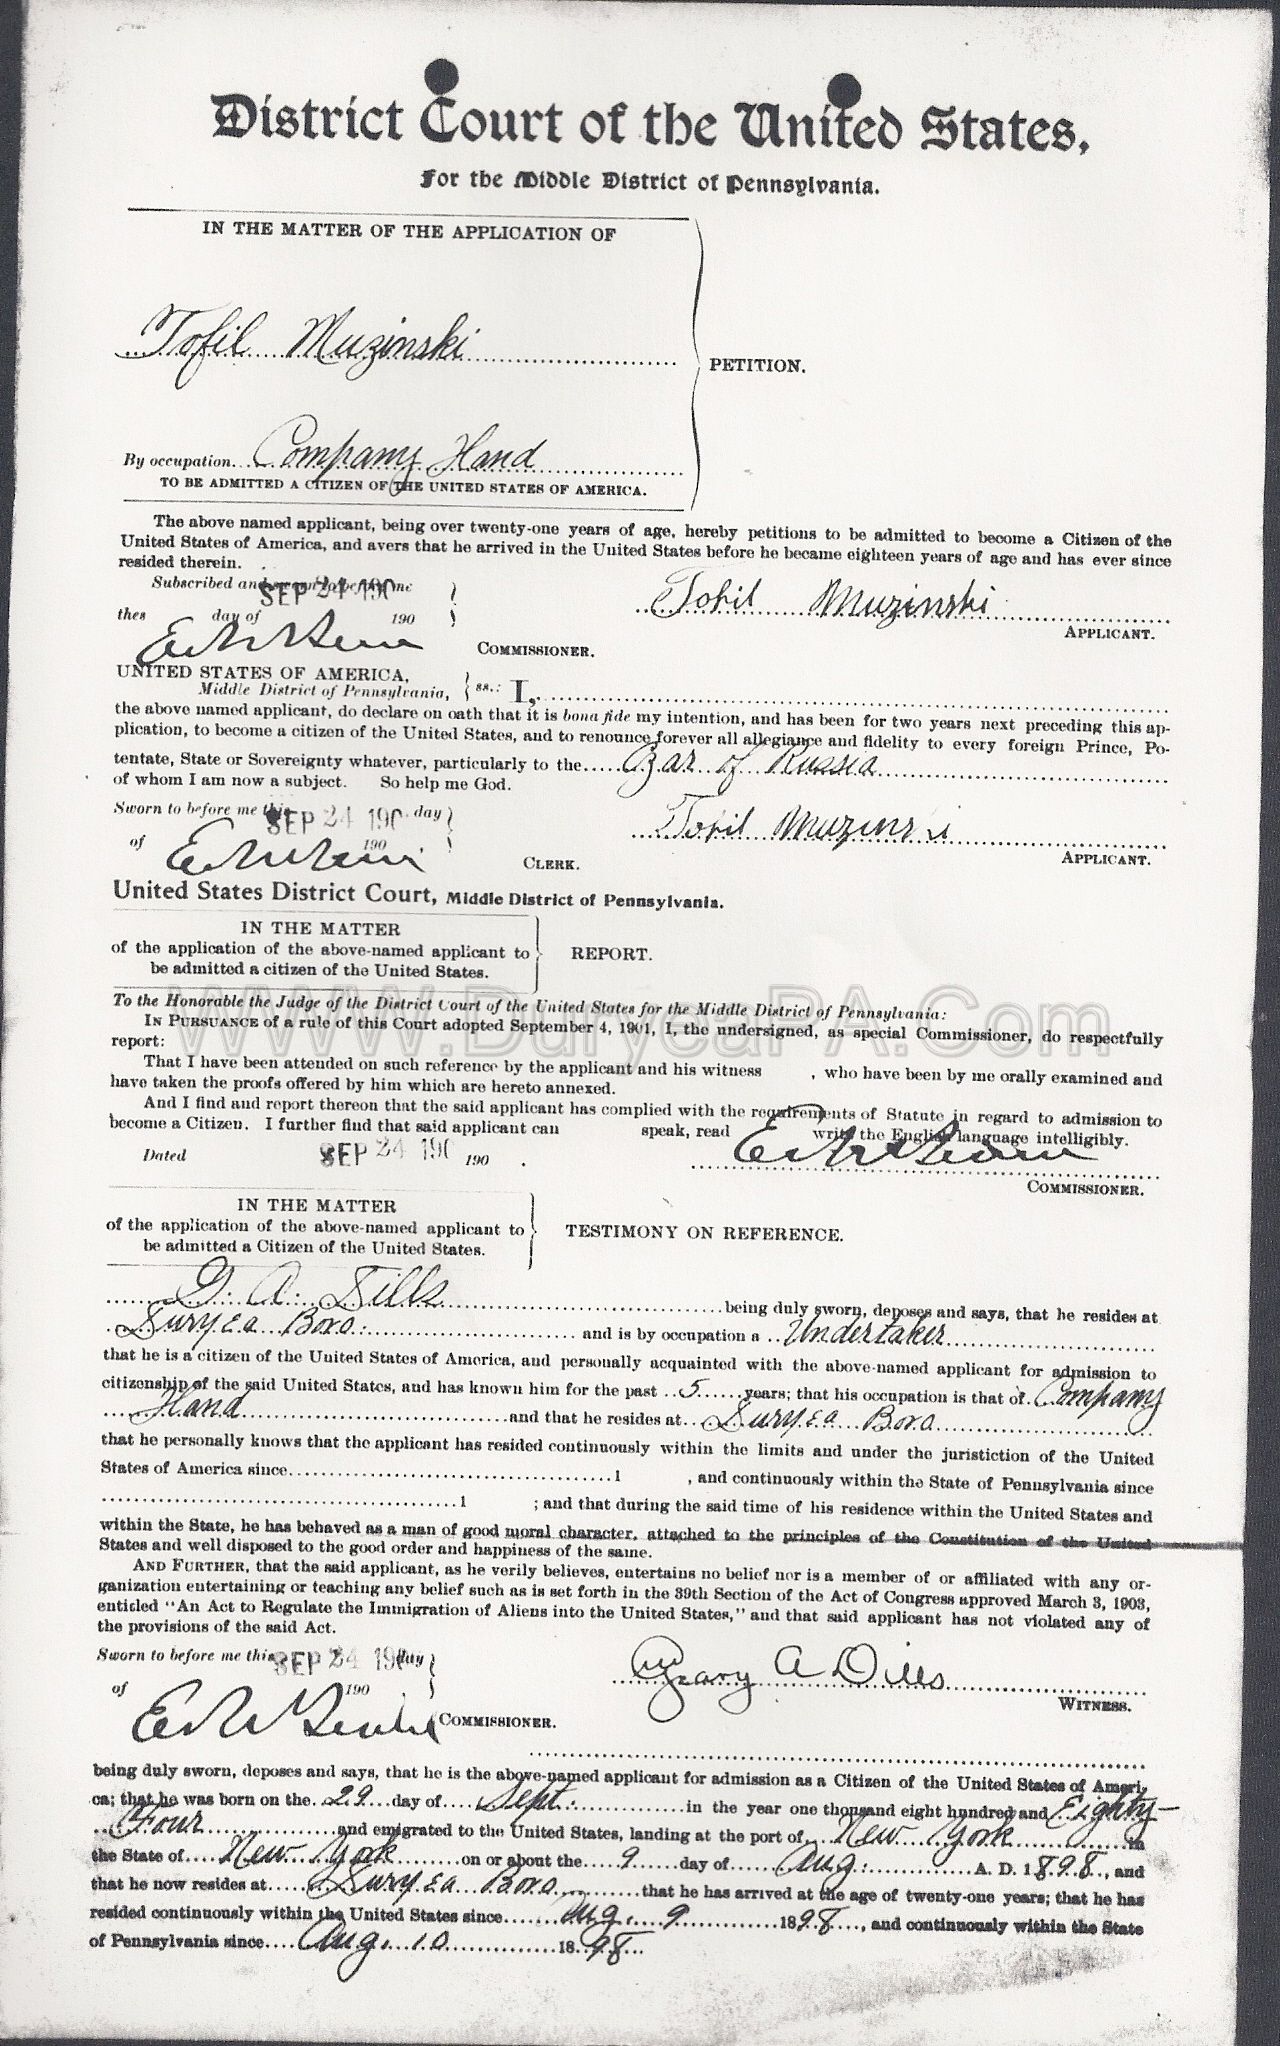 District Court of the United States,
For the Middle District of Pennsylvania.
IN THE MATTER OF THE APPLICATION OF
Tofil Muzinski
PETITION.
By occupation Company Hand
TO BE ADMITTED A CITIZEN OF THE UNITED STATES OF AMERICA.
The above named applicant, being over twenty-one years of age, hereby petitions to be admitted to become a Citizen of the
United States of America, and avers that he arrived in the United States before he became eighteen years of age and has ever since
resided therein.
Subscribed and sworn to before me
SEP 24 190
Tofil Muzinski
thes day of 190
APPLICANT.
COMMISSIONER.
UNITED STATES OF AMERICA,
Middle District of Pennsylvania, ss.: I,
the above named applicant, do declare on oath that it is bona fide my intention, and has been for two years next preceding this ap-
plication, to become a citizen of the United States, and to renounce forever all allegiance and fidelity to every foreign Prince, Po-
tentate, State or Sovereignty whatever, particularly to the Czar of Russia
of whom I am now a subject. So help me God.
Sworn to before me this SEP 24 190 day
Tofil Muzinski
of 190 CLERK.
APPLICANT.
United States District Court, Middle District of Pennsylvania.
IN THE MATTER
of the application of the above-named applicant to
be admitted a citizen of the United States.
REPORT.
WWW.DuryeaPA.Com
To the Honorable the Judge of the District Court of the United States for the Middle District of Pennsylvania:
IN PURSUANCE of a rule of this Court adopted September 4, 1901, I, the undersigned, as special Commissioner, do respectfully
report:
That I have been attended on such reference by the applicant and his witness , who have been by me orally examined and
have taken the proofs offered by him which are hereto annexed.
And I find and report thereon that the said applicant has complied with the requirements of Statute in regard to admission to
become a Citizen. I further find that said applicant can speak, read write the English language intelligibly.
Dated SEP 24 190 190 .
COMMISSIONER.
IN THE MATTER
of the application of the above-named applicant to
be admitted a Citizen of the United States.
TESTIMONY ON REFERENCE.
G. A. Dills being duly sworn, deposes and says, that he resides at
Duryea Boro. and is by occupation a Undertaker
that he is a citizen of the United States of America, and personally acquainted with the above-named applicant for admission to
citizenship of the said United States, and has known him for the past 5 years; that his occupation is that of Company
Hand and that he resides at Duryea Boro
that he personally knows that the applicant has resided continuously within the limits and under the juristiction of the United
States of America since 1 , and continuously within the State of Pennsylvania since
1 ; and that during the said time of his residence within the United States and
within the State, he has behaved as a man of good moral character, attached to the principles of the Constitution of the United
States and well disposed to the good order and happiness of the same.
AND FURTHER, that the said applicant, as he verily believes, entertains no belief nor is a member of or affiliated with any or-
ganization entertaining or teaching any belief such as is set forth in the 39th Section of the Act of Congress approved March 3, 1903,
entitled "An Act to Regulate the Immigration of Aliens into the United States," and that said applicant has not violated any of
the provisions of the said Act.
Sworn to before me this SEP 24 190 day
Geary A Dills
of 190
WITNESS.
COMMISSIONER.
being duly sworn, deposes and says, that he is the above-named applicant for admission as a Citizen of the United States of Ameri-
ca; that he was born on the 29 day of Sept. in the year one thousand eight hundred and Eighty-
Four and emigrated to the United States, landing at the port of New York in
the State of New York on or about the 9 day of Aug. A. D. 1898, and
that he now resides at Duryea Boro that he has arrived at the age of twenty-one years; that he has
resided continuously within the United States since Aug. 9 1898, and continuously within the State
of Pennsylvania since Aug. 10 1898